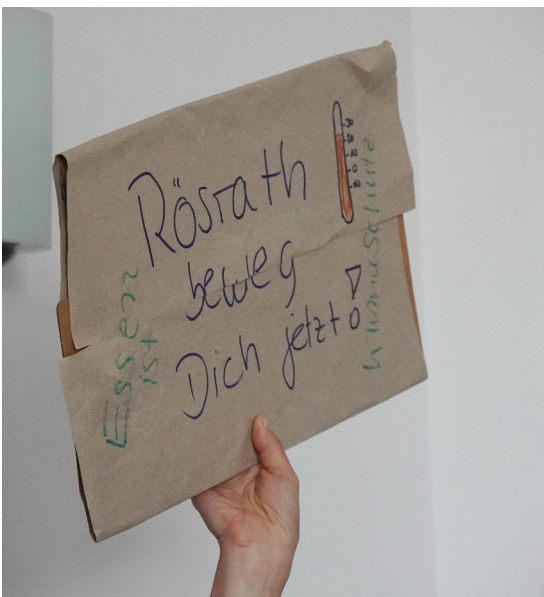 Rösrath
beweg
Dich jetzt!
Essen
ist
Klimaschutz